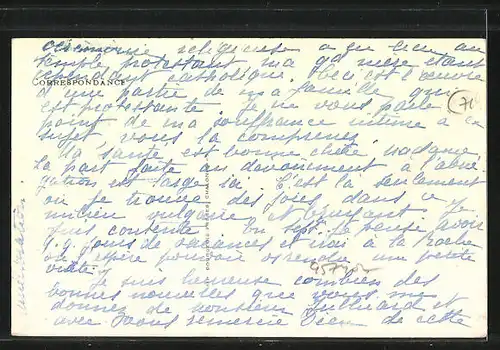 cérémonie religieuse a eu lieu au
temple protestant ma gd mère étant
cependant catholique. Ceci est l'œuvre
CORRESPONDANCE
d'une partie de ma famille qui
est protestante. Je ne vous parle
(71)
point de ma souffrance intime à ce
sujet, vous la comprenez.
Ma santé est bonne chère Madame,
la part faite au dévouement à l'abné
gation est large ici. C'est là seulement
où je trouve des joies dans ce
milieu vulgaire et bruyant. Je
suis contente en sept. je pense avoir
q.q. jours de vacances et irai à la Roche
où j'espère pouvoir vous rendre une petite
visite.
Je suis heureuse combien des
bonnes nouvelles que vous me
donnez de Monsieur et
avec vous remercie Dieu de cette